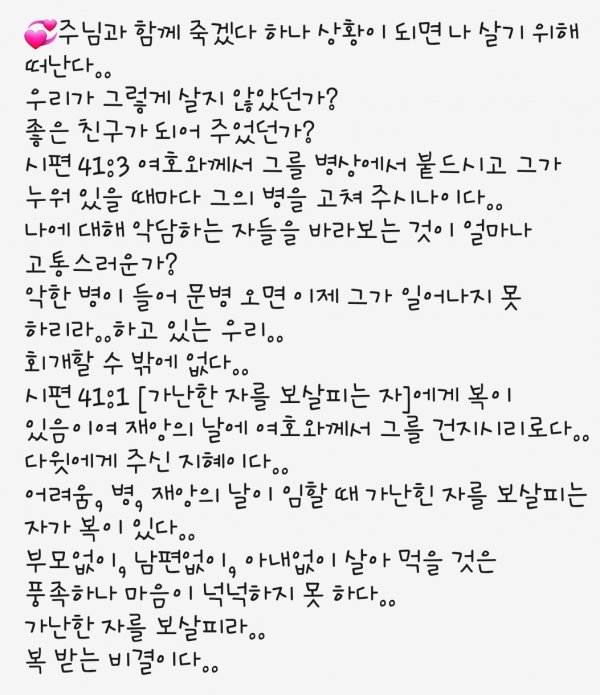 💞주님과 함께 죽겠다 하나 상황이 되면 나 살기 위해
떠난다。。
우리가 그렇게 살지 않았던가?
좋은 친구가 되어 주었던가?
시편 41:3 여호와께서 그를 병상에서 붙드시고 그가
누워 있을 때마다 그의 병을 고쳐 주시나이다。。
나에 대해 악담하는 자들을 바라보는 것이 얼마나
고통스러운가?
악한 병이 들어 문병 오면 이제 그가 일어나지 못
하리라。。하고 있는 우리。。
회개할 수 밖에 없다。。
시편 41:1 [가난한 자를 보살피는 자]에게 복이
있음이여 재앙의 날에 여호와께서 그를 건지시리로다。。
다윗에게 주신 지혜이다。。
어려움, 병, 재앙의 날이 임할 때 가난힌 자를 보살피는
자가 복이 있다。。
부모없이, 남편없이, 아내없이 살아 먹을 것은
풍족하나 마음이 넉넉하지 못 하다。。
가난한 자를 보살피라。。
복 받는 비결이다。。